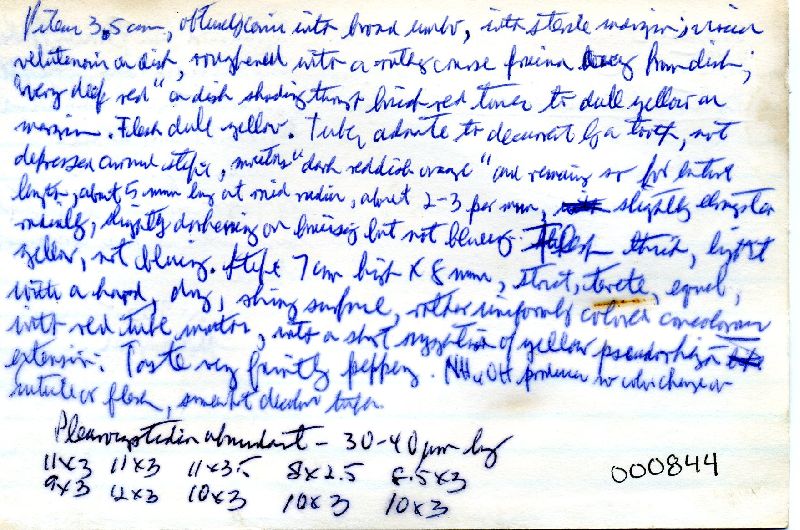 Pileus 3.5 cm, obtusely conic with broad umbo, with sterile margin, viscid
velutinous on disk, roughened with a rather coarse from disk;
"very deep red" on disk shading through brick-red tones to dull yellow on
margin. Flesh dull yellow. Tubes adnate to decurrent by a tooth, not
depressed around stipe, mouths "dark reddish orange" and remaining so for entire
length, about 5 mm long at mid radius, about 2-3 per mm, slightly elongate
radially, slightly darkening on bruising but not blueing. Flesh thick, light
yellow, not bluing. Stipe 7 cm high x 8 mm, strict, terete, equal,
with a hard, dry, shiny surface, rather uniformly colored concolorous
with red tube mouths, with a short of yellow pseudorhiza
extension. Taste very faintly peppery. NH4OH produces no color change on
cuticle or flesh,
Pleurocystidia abundant - 30-40 µm long
11x3 11x3 11x3.5 8x2.5 8.5x3
9x3 12x3 10x3 10x3 10x3
000844